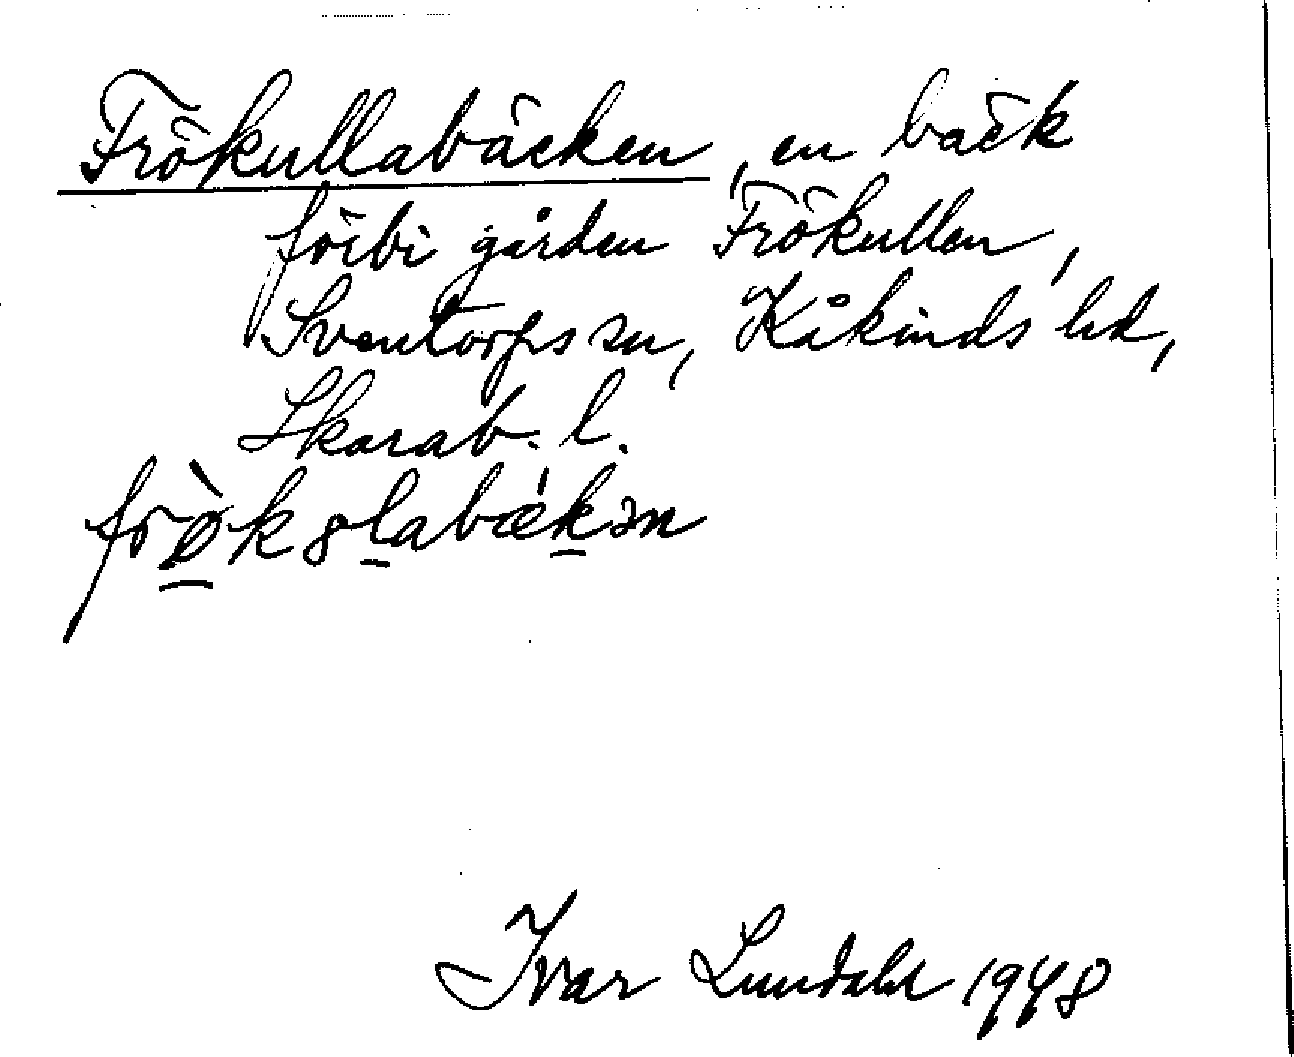 Frökullabäcken, en bäck
förbi gården Frökullen,
Sventorps sn, Kåkinds hd,
Skarab. l.
frø̀k8labǽkən
Ivar Lundahl 1948